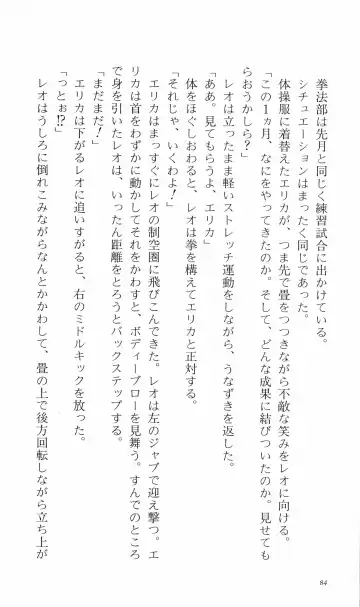 拳法部は先月と同じく練習試合に出かけている。
シチュエーションはまったく同じであった。
体操服に着替えたエリカが、つま先で畳をつつきながら不敵な笑みをレオに向ける。
「この１ヵ月、なにをやってきたのか。そして、どんな成果に結びついたのか。見せても
らおうかしら？」
レオは立ったまま軽いストレッチ運動をしながら、うなずきを返した。
「ああ。見てもらうよ、エリカ」
体をほぐしおわると、レオは拳を構えてエリカと正対する。
「それじゃ、いくわよ！」
エリカはまっすぐにレオの制空圏に飛びこんできた。レオは左のジャブで迎え撃つ。エ
リカは首をわずかに動かしてそれをかわすと、ボディーブローを見舞う。すんでのところ
で身を引いたレオは、いったん距離をとろうとバックステップする。
「まだまだ！」
エリカは下がるレオに追いすがると、右のミドルキックを放った。
「っとぉ⁉」
レオはうしろに倒れこみながらなんとかかわして、畳の上で後方回転しながら立ち上が
84